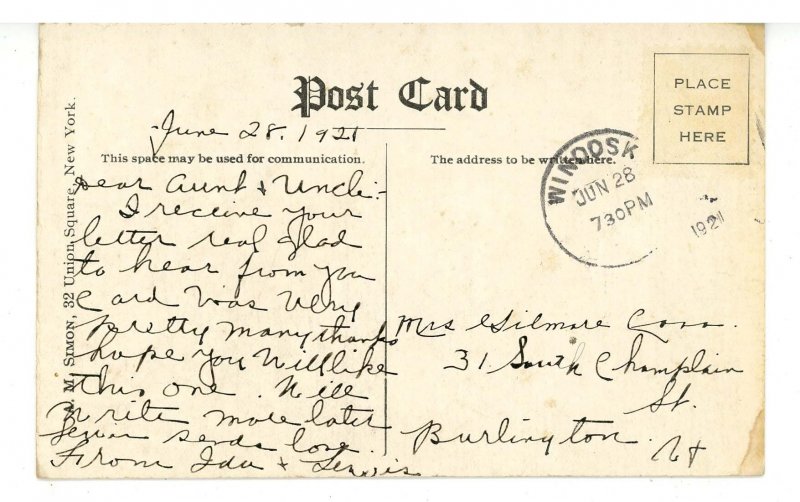 Post Card
PLACE
STAMP
HERE
June 28, 1921
This space may be used for communication.
The address to be written here.
WINOOSK
JUN 28
730PM
1921
A. M. SIMON, 32 Union Square, New York.
Dear Aunt & Uncle:-
I receive your
letter real glad
to hear from you
Card was very
pretty many thanks
hope you will like
this one. Will
write more later
sends love.
From Ida &
Mrs Gilmore
31 South Champlain
St.
Burlington.
Vt